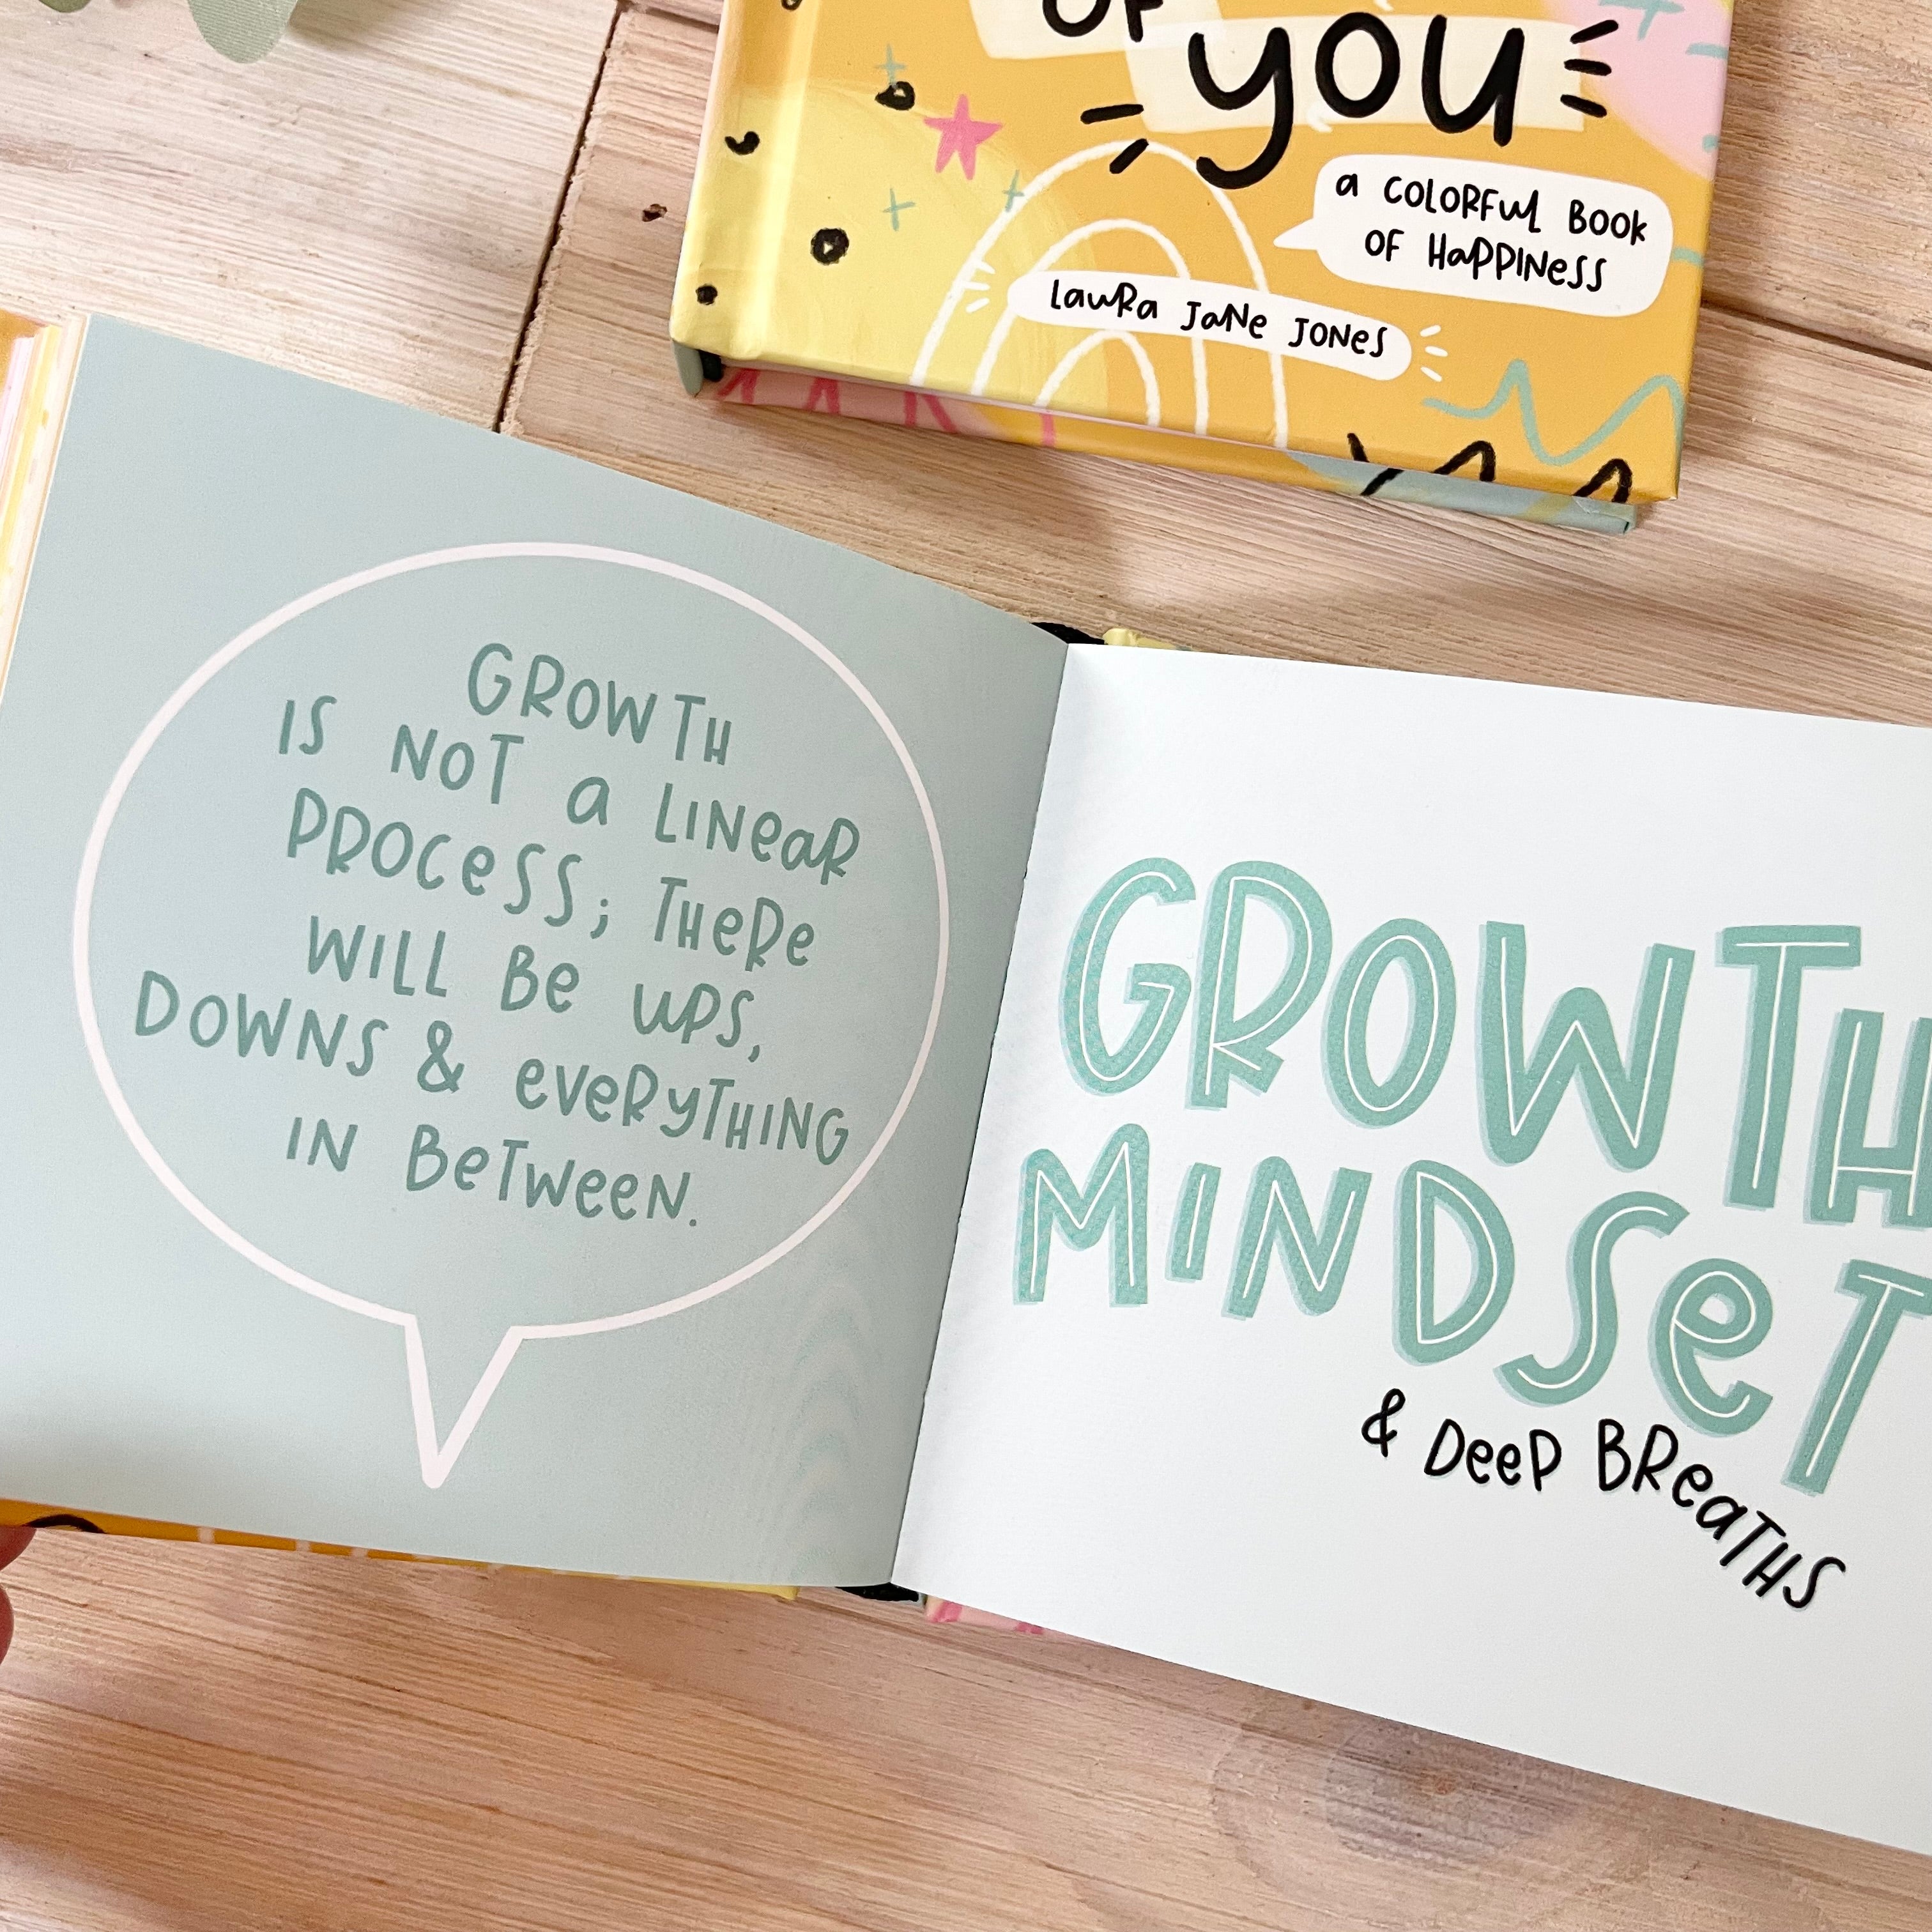 OF
YOU
a COLORFUL BOOK
OF HaPPINess
LauRa JaNe JONes
GROWTH
IS NOT a LINeaR
PROCeSS; THeRe
WILL Be UPS,
DOWNS & eVeRYTHING
IN BeTWeeN.
GROWTH
MINDSeT
& DeeP BReaTHS